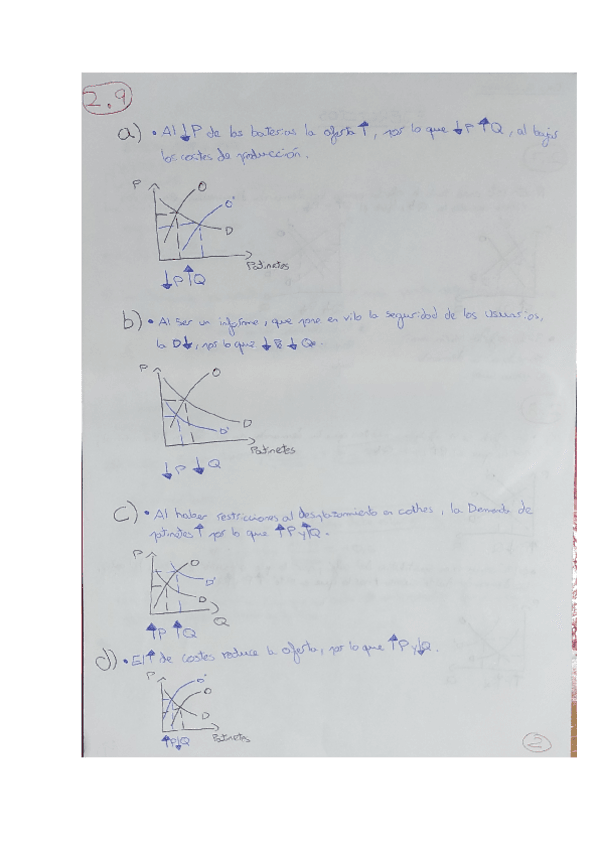 2.9
a) • Al ↓P de las baterías la oferta ↑, por lo que ↓P ↑Q, al bajar
los costes de producción.
P
O
O'
D
Patinetes
↓P ↑Q
b) • Al ser un informe, que pone en vilo la seguridad de los usuarios,
la D↓, por lo que ↓P ↓Q.
P
O
D
D'
Patinetes
↓P ↓Q
C) • Al haber restricciones al desplazamiento en coches, la Demanda de
patinetes ↑ por lo que ↑P y ↑Q.
P
O
D'
D
Q
↑P ↑Q
d) • El ↑ de costes reduce la oferta, por lo que ↑P y ↓Q.
P
O'
O
D
Patinetes
↑P ↓Q
2